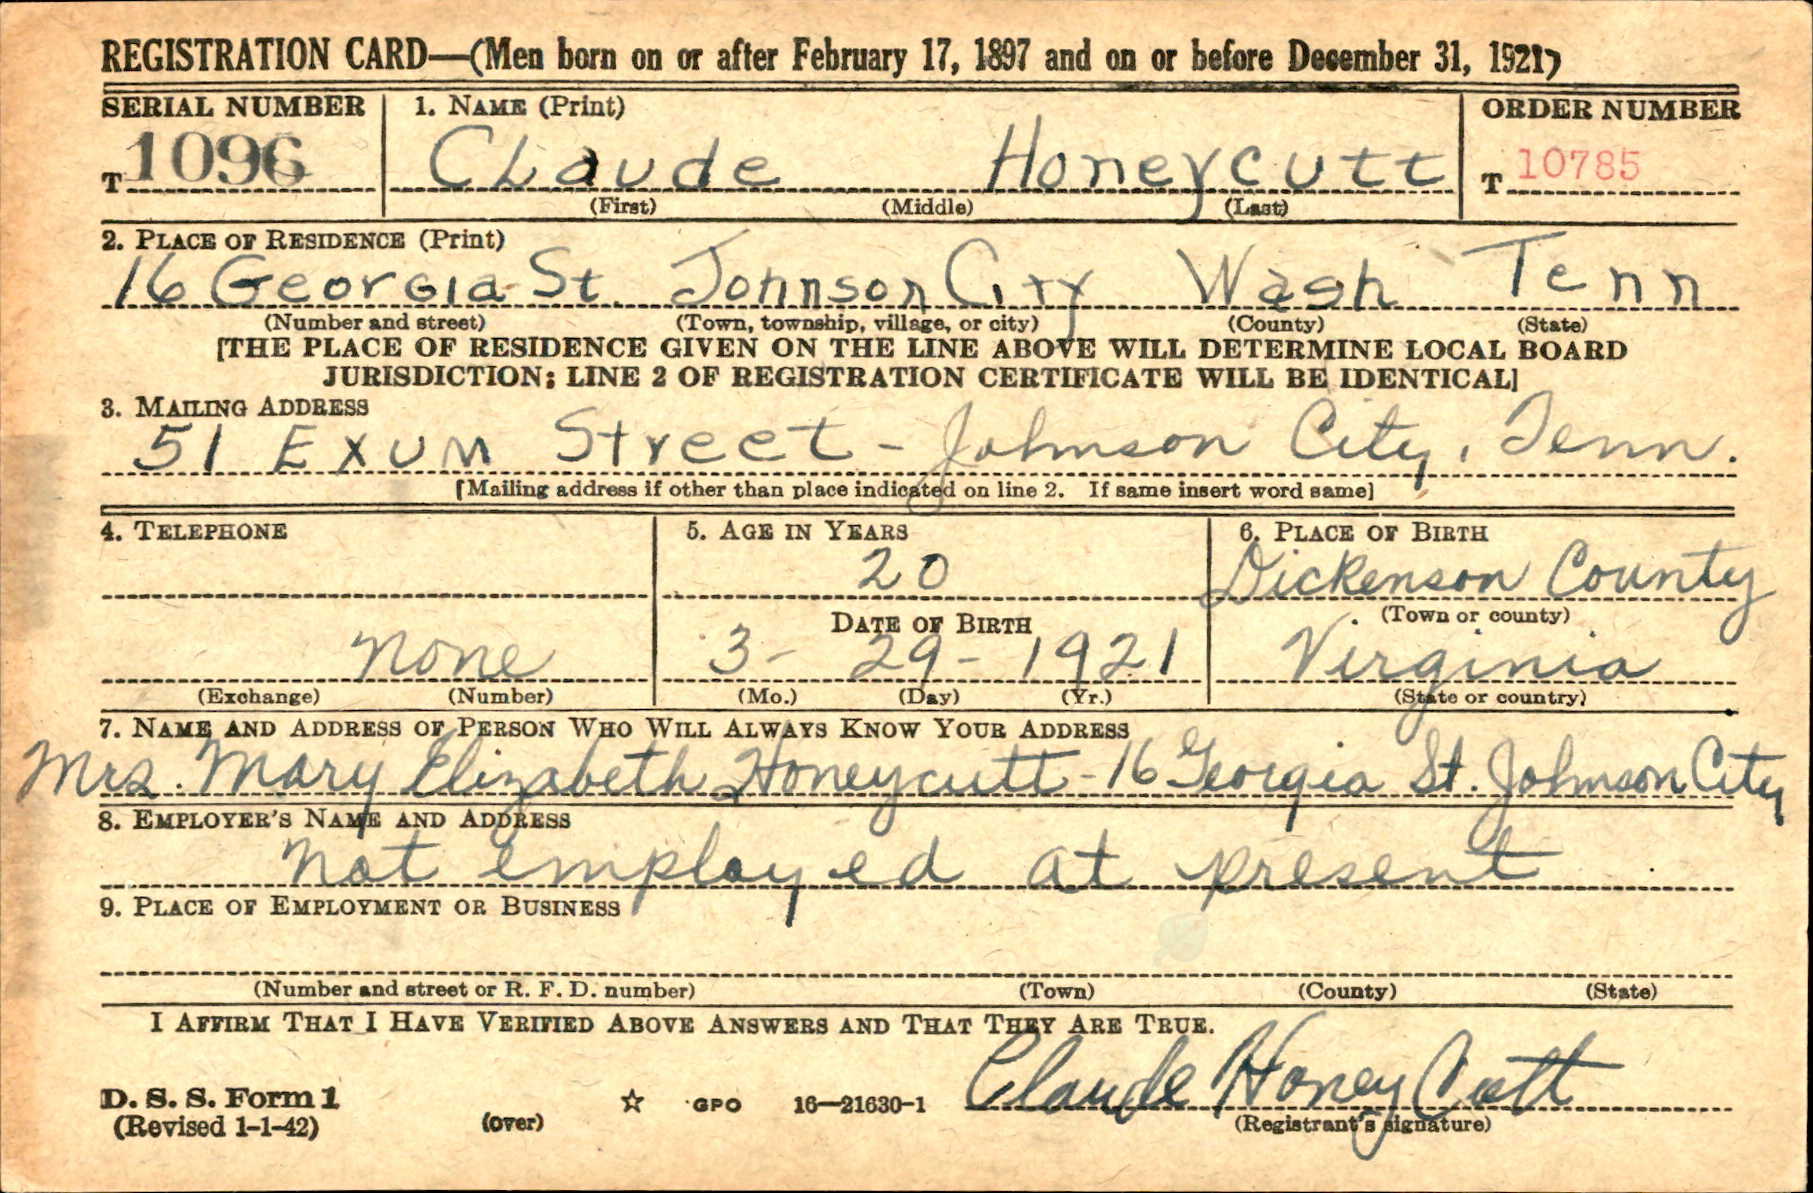 REGISTRATION CARD—(Men born on or after February 17, 1897 and on or before December 31, 1921)
SERIAL NUMBER 1. NAME (Print) ORDER NUMBER
T 1096 Claude Honeycutt T 10785
(First) (Middle) (Last)
2. PLACE OF RESIDENCE (Print)
16 Georgia St. Johnson City Wash Tenn
(Number and street) (Town, township, village, or city) (County) (State)
[THE PLACE OF RESIDENCE GIVEN ON THE LINE ABOVE WILL DETERMINE LOCAL BOARD
JURISDICTION; LINE 2 OF REGISTRATION CERTIFICATE WILL BE IDENTICAL]
3. MAILING ADDRESS
51 Exum Street - Johnson City, Tenn.
[Mailing address if other than place indicated on line 2. If same insert word same]
4. TELEPHONE 5. AGE IN YEARS 6. PLACE OF BIRTH
20 Dickenson County
DATE OF BIRTH (Town or county)
None 3- 29- 1921 Virginia
(Exchange) (Number) (Mo.) (Day) (Yr.) (State or country)
7. NAME AND ADDRESS OF PERSON WHO WILL ALWAYS KNOW YOUR ADDRESS
Mrs. Mary Elizabeth Honeycutt - 16 Georgia St. Johnson City
8. EMPLOYER'S NAME AND ADDRESS
Not employed at present
9. PLACE OF EMPLOYMENT OR BUSINESS
(Number and street or R. F. D. number) (Town) (County) (State)
I AFFIRM THAT I HAVE VERIFIED ABOVE ANSWERS AND THAT THEY ARE TRUE.
D. S. S. Form 1 ☆ GPO 16—21630-1 Claude Honey Cutt
(Revised 1-1-42) (over) (Registrant's signature)